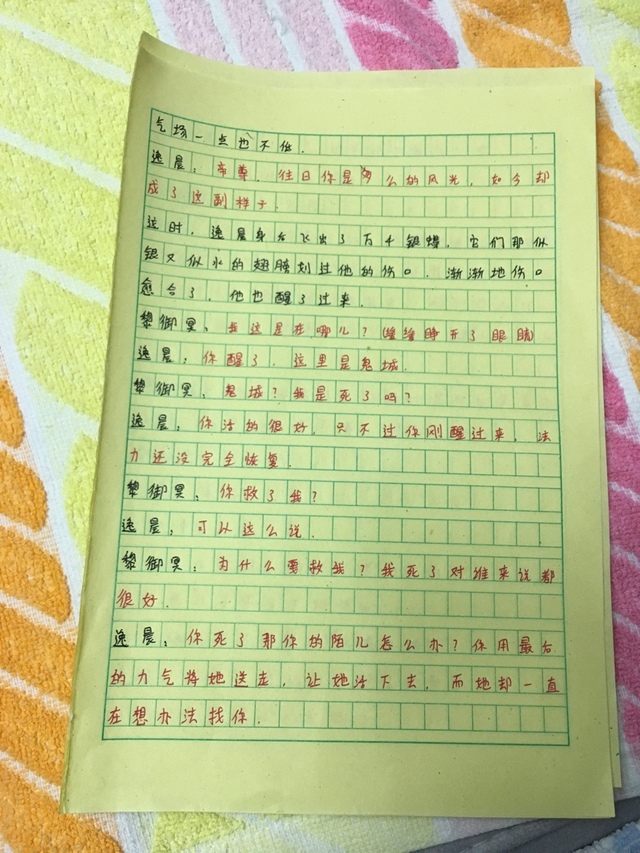 气场一点也不低.
逸晨：帝尊，往日你是多么的风光，如今却
成了这副样子.
这时，逸晨身后飞出了万千银蝶，它们那似
银又似水的翅膀划过他的伤口，渐渐地伤口
愈合了，他也醒了过来.
黎御冥：我这是在哪儿？(缓缓睁开了眼睛)
逸晨：你醒了，这里是鬼城.
黎御冥：鬼城？我是死了吗？
逸晨：你活的很好，只不过你刚醒过来，法
力还没完全恢复.
黎御冥：你救了我？
逸晨：可以这么说.
黎御冥：为什么要救我？我死了对谁来说都
很好.
逸晨：你死了那你的陌儿怎么办？你用最后
的力气将她送走，让她活下去，而她却一直
在想办法找你.